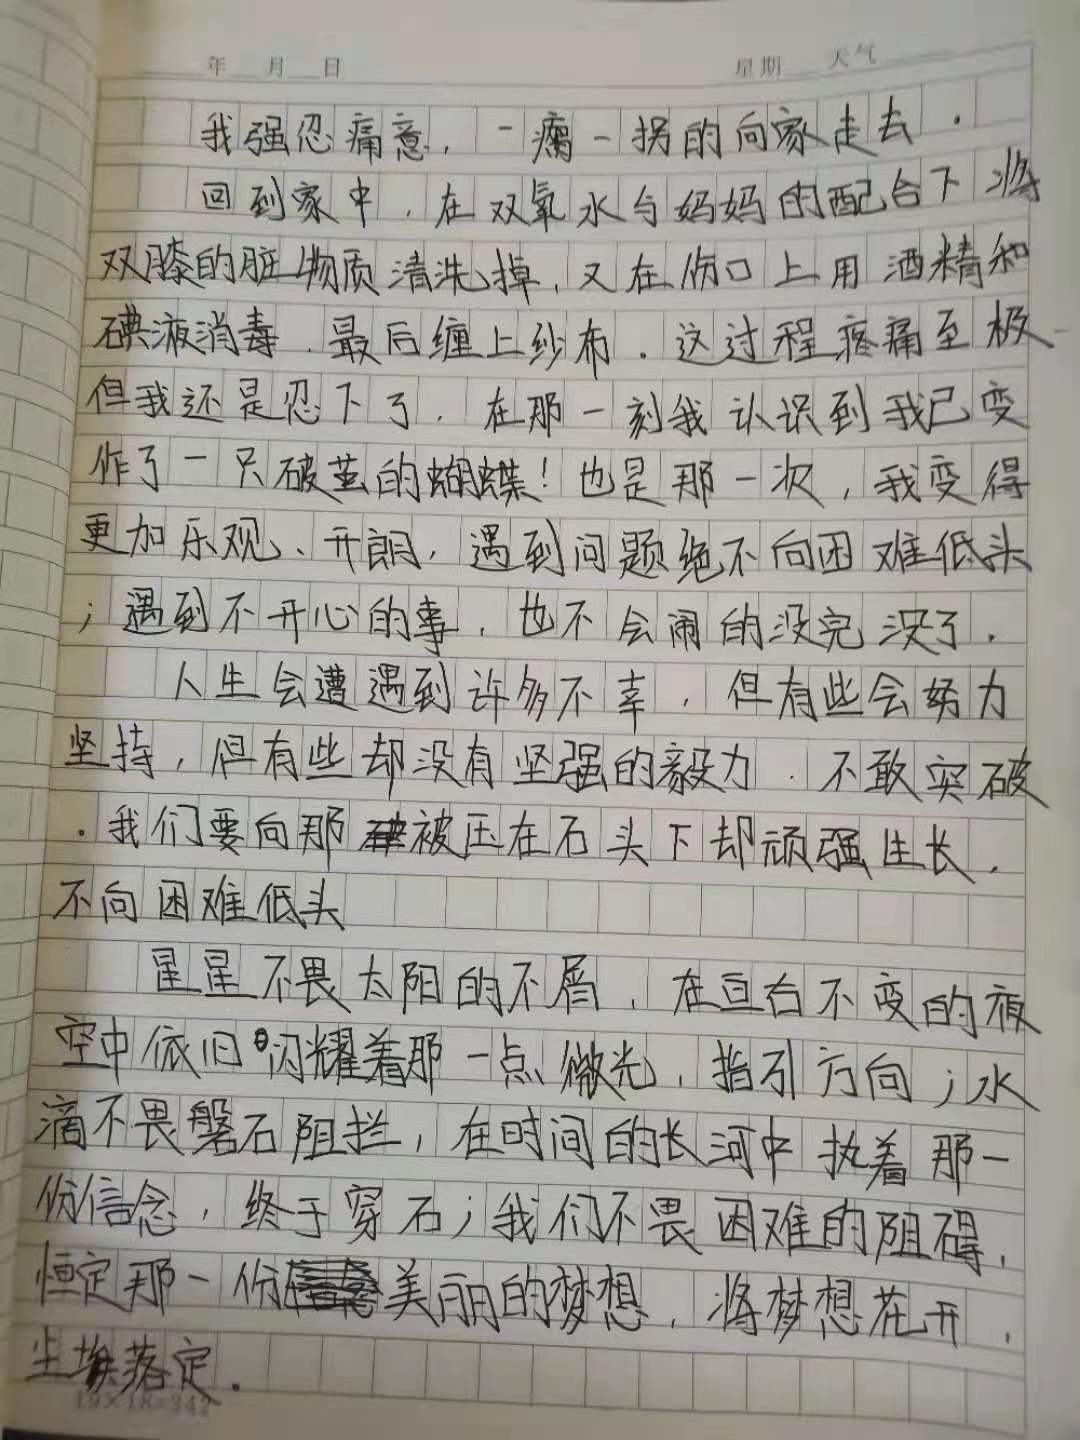 年 月 日 星期 天气
我强忍痛意，一瘸一拐的向家走去．
回到家中，在双氧水与妈妈的配合下将
双膝的脏物质清洗掉，又在伤口上用酒精和
碘液消毒．最后缠上纱布．这过程疼痛至极
但我还是忍下了．在那一刻我认识到我已变
作了一只破茧的蝴蝶！也是那一次，我变得
更加乐观、开朗，遇到问题绝不向困难低头
；遇到不开心的事，也不会闹的没完没了．
人生会遭遇到许多不幸，但有些会努力
坚持，但有些却没有坚强的毅力．不敢突破
．我们要向那被压在石头下却顽强生长，
不向困难低头
星星不畏太阳的不屑，在亘古不变的夜
空中依旧闪耀着那一点微光，指引方向；水
滴不畏磐石阻拦，在时间的长河中执着那一
份信念，终于穿石；我们不畏困难的阻碍，
恒定那一份美丽的梦想，将梦想花开，
尘埃落定．
19×18=342